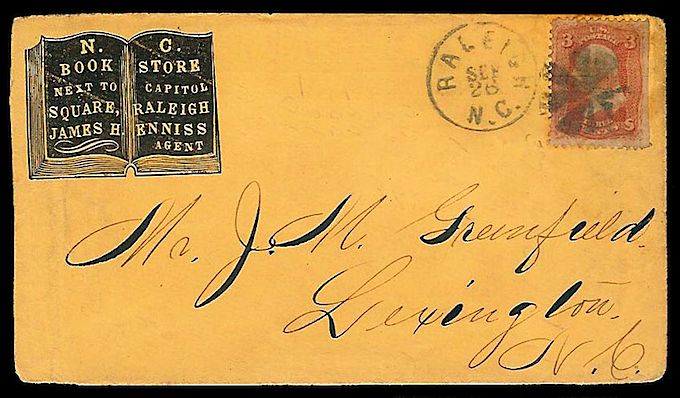 N. C.
BOOK STORE
NEXT TO CAPITOL
SQUARE, RALEIGH
JAMES H. ENNISS
AGENT
RALEIGH
SEP
26
N.C.
3 3
Mr. J. M. Greenfield.
Lexington.
N.C.